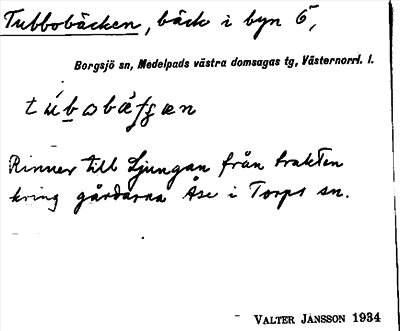 Tubbobäcken, bäck i byn 6,
Borgsjö sn, Medelpads västra domsagas tg, Västernorrl. l.
Rinner till Ljungan från trakten
kring gårdarna Åse i Torps sn.
VALTER JANSSON 1934